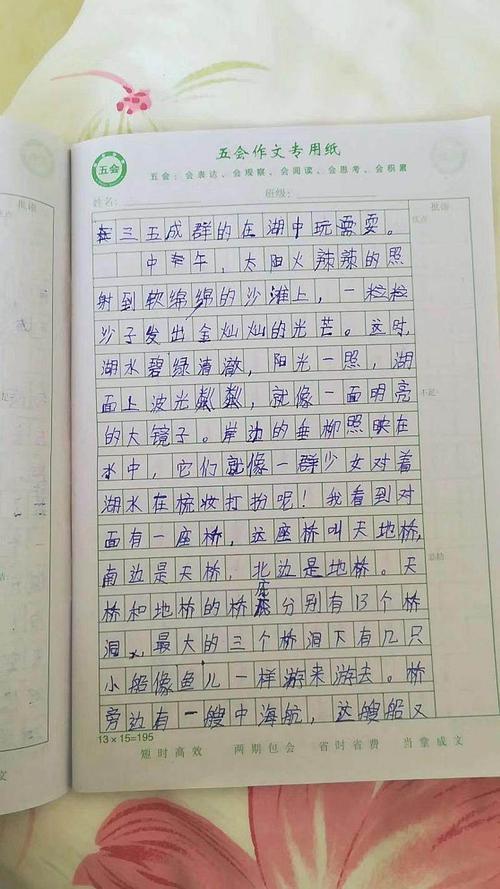 五会作文专用纸
五会
五会：会表达、会观察、会阅读、会思考、会积累
姓名：
班级：
批语
优点
三五成群的在湖中玩耍耍。
中午，太阳火辣辣的照
射到软绵绵的沙滩上，一粒粒
沙子发出金灿灿的光芒。这时，
湖水碧绿清澈，阳光一照，湖
面上波光粼粼，就像一面明亮
的大镜子。岸边的垂柳照映在
水中，它们就像一群少女对着
湖水在梳妆打扮呢！我看到对
面有一座桥，这座桥叫天地桥，
南边是天桥，北边是地桥。天
桥和地桥的桥底分别有13个桥
洞，最大的三个桥洞下有几只
小船像鱼儿一样游来游去。桥
旁边有一艘中海航，这艘船又
不足
总结
13×15=195
短时高效 两期包会 省时省费 当堂成文